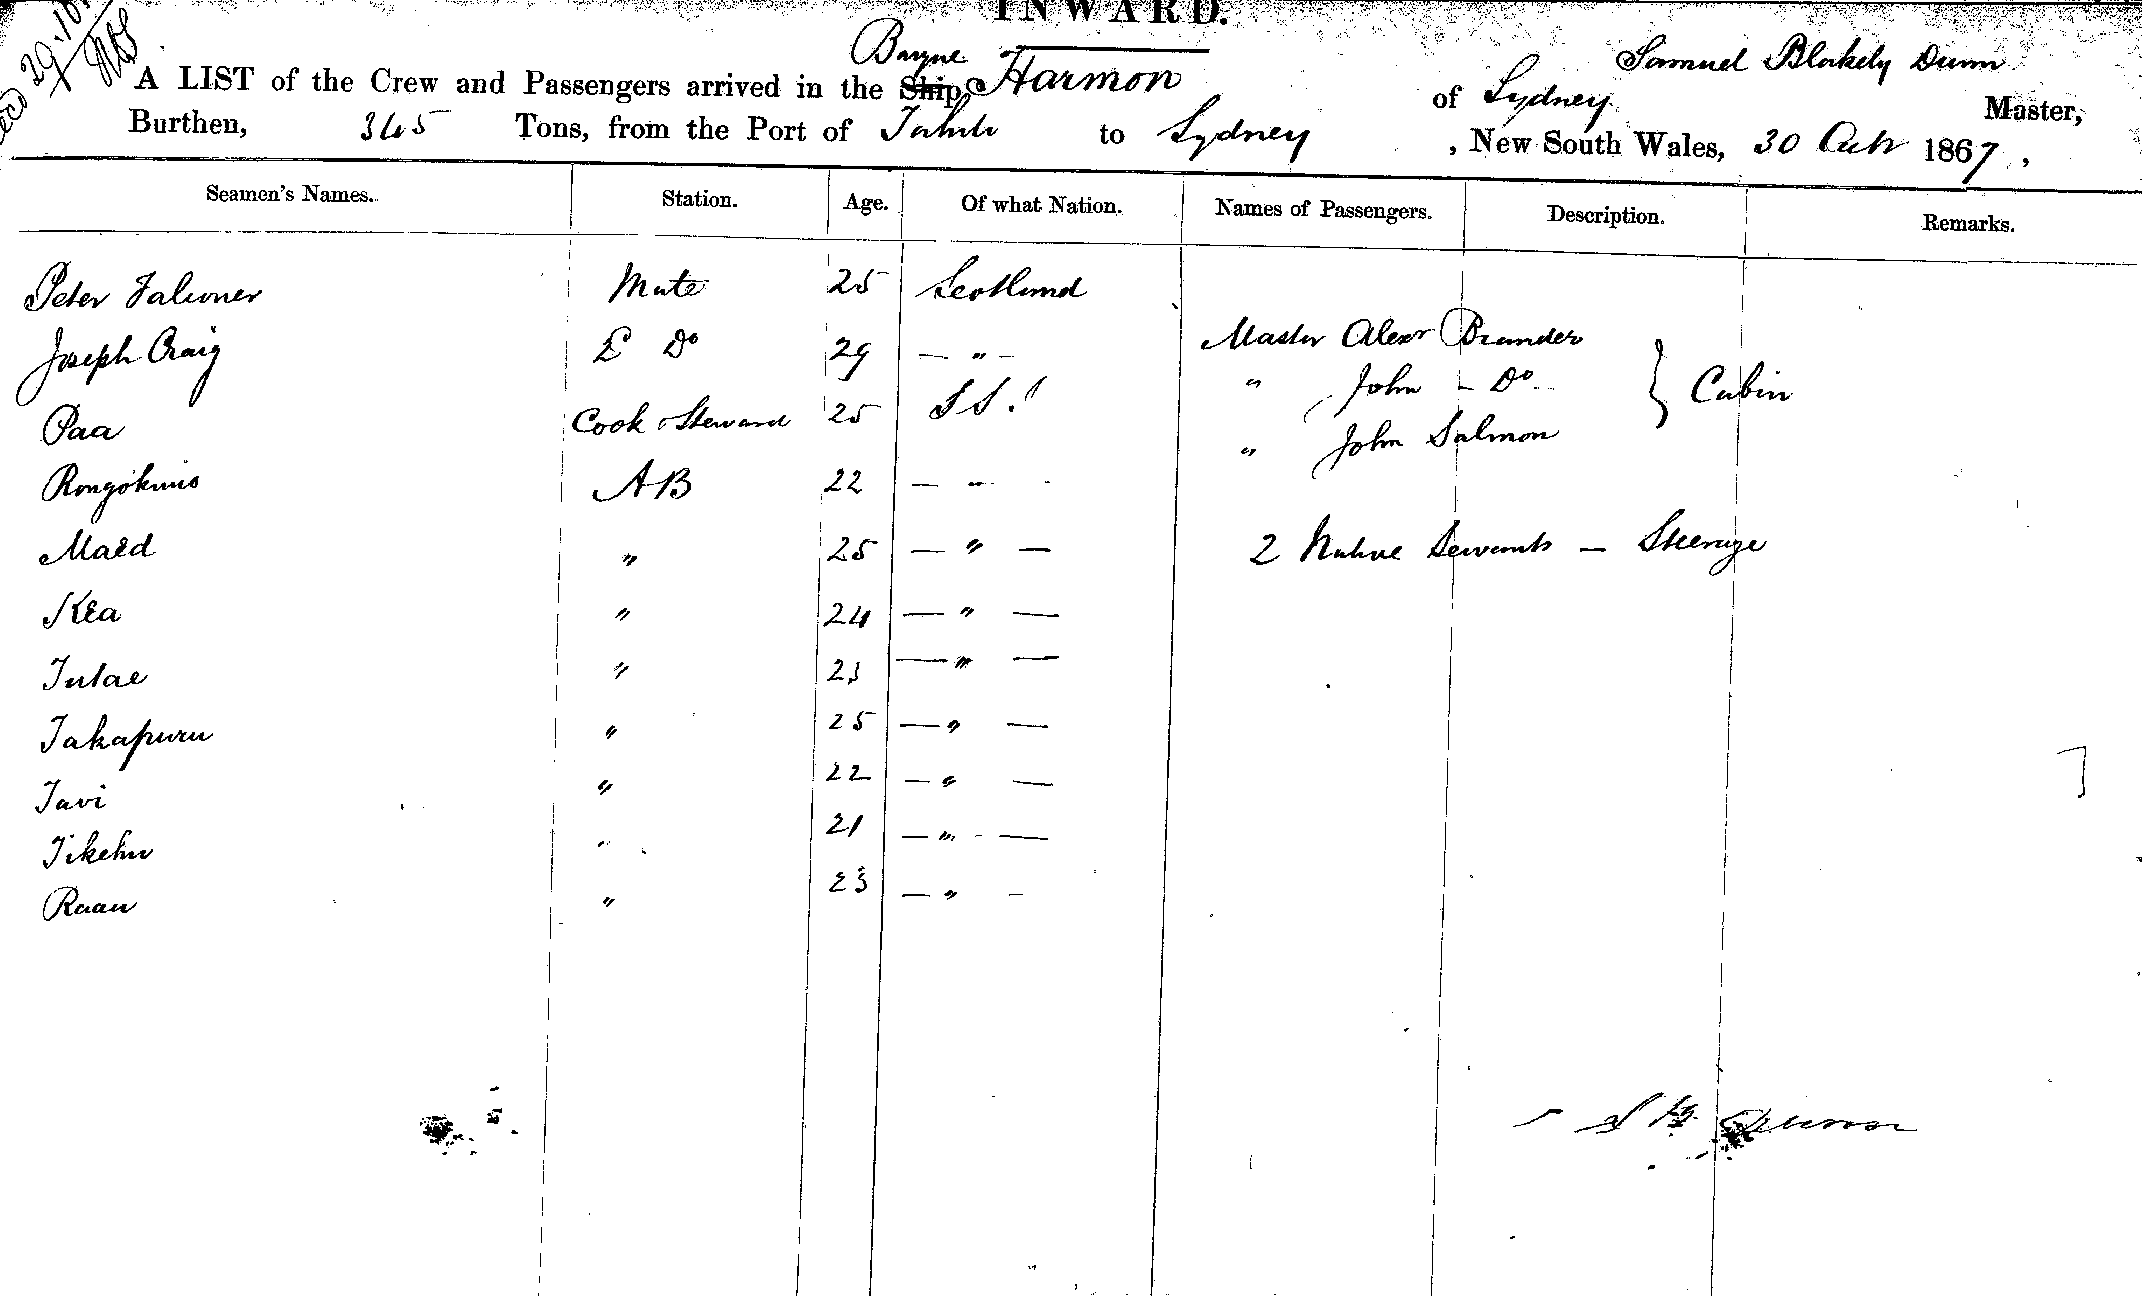 INWARD.
Samuel Blakely Dunn
A LIST of the Crew and Passengers arrived in the Ship, Barque Harmon of Sydney Master,
Burthen, 345 Tons, from the Port of Tahiti to Sydney, New South Wales, 30 Octr 1867,
Seamen's Names. Station. Age. Of what Nation. Names of Passengers. Description. Remarks.
Peter Falconer Mate 25 Scotland
Joseph Craig 2 Do 29 — " — Master Alexr Brander
" John — Do Cabin
Paa Cook & Steward 25 S S.I " John Salmon
AB 22 — " -
Maed " 25 — " — 2 Native Servants — Steerage
Kea " 24 — " —
Tutae " 23 — " —
Takapuru " 25 — " —
Tavi " 22 — " —
Tikehu " 21 — " —
Raau " 23 — " -
S B Dunn